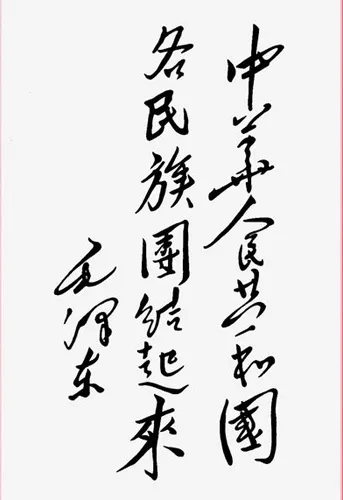 中华人民共和國
各民族團結起來
毛泽东